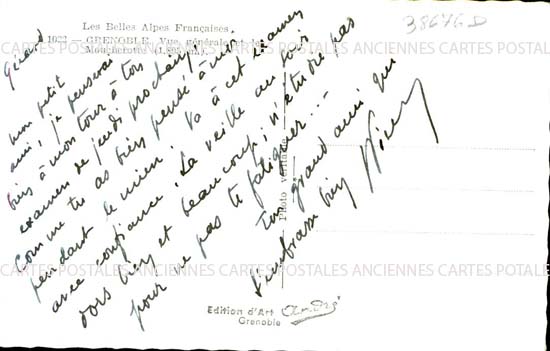 Les Belles Alpes Françaises.
1022 — GRENOBLE. Vue générale et le
Moucherotte
38646 D
Gérard
mon petit
ami, je penserai
bien à mon tour à ton
examen de jeudi prochain
Comme tu as bien pensé à moi
pendant le mien. Va à cet examen
avec confiance. La veille au soir
dors bien et beaucoup, n'étudie pas
pour ne pas te fatiguer...
Ton grand ami qui
t'embrasse bien
Photo véritable
Edition d'Art André
Grenoble
CARTES POSTALES ANCIENNES CARTES POSTALES ANCIENNES CARTES POSTALES
CARTES POSTALES ANCIENNES CARTES POSTALES ANCIENNES CARTES POTALES